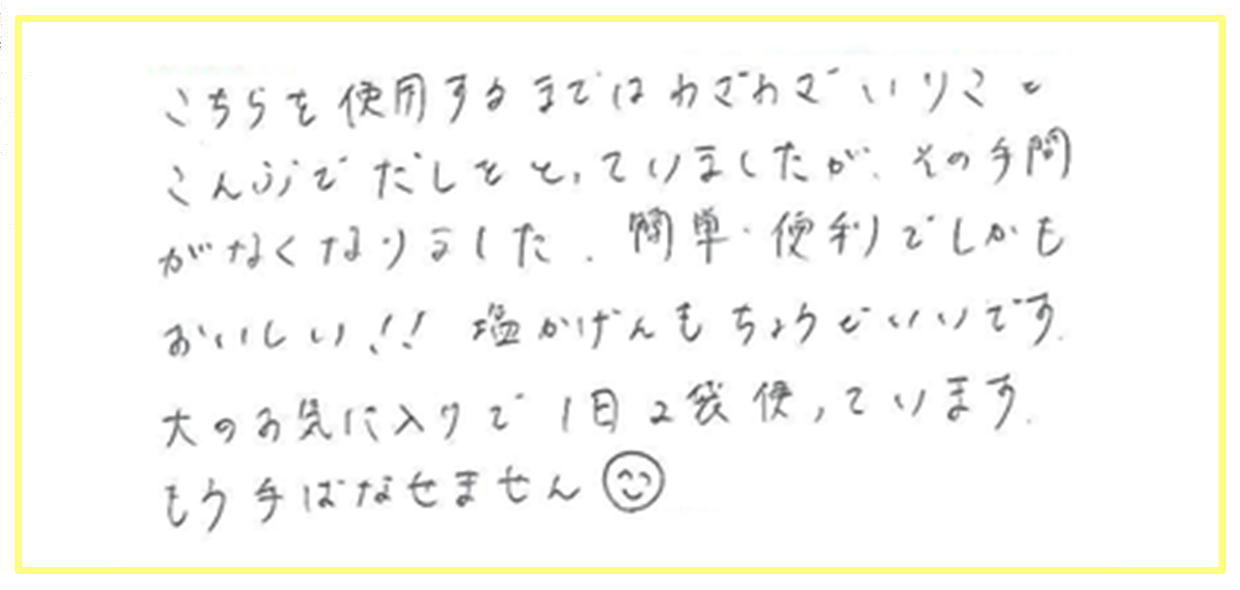 こちらを使用するまではわざわざいりこと
こんぶでだしをとっていましたが、その手間
がなくなりました。簡単・便利でしかも
おいしい!! 塩かげんもちょうどいいです。
大のお気に入りで1日2袋使っています。
もう手ばなせません